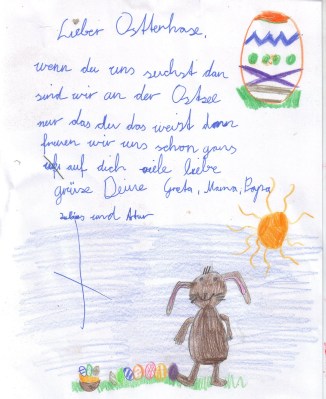 Lieber Ostterhase,
wenn du uns suchst dan
sind wir an der Ostsee
nur das du das weist dann
freuen wir uns schon gans
auf dich viele liebe
grüse Deine Greta, Mama, Papa
und